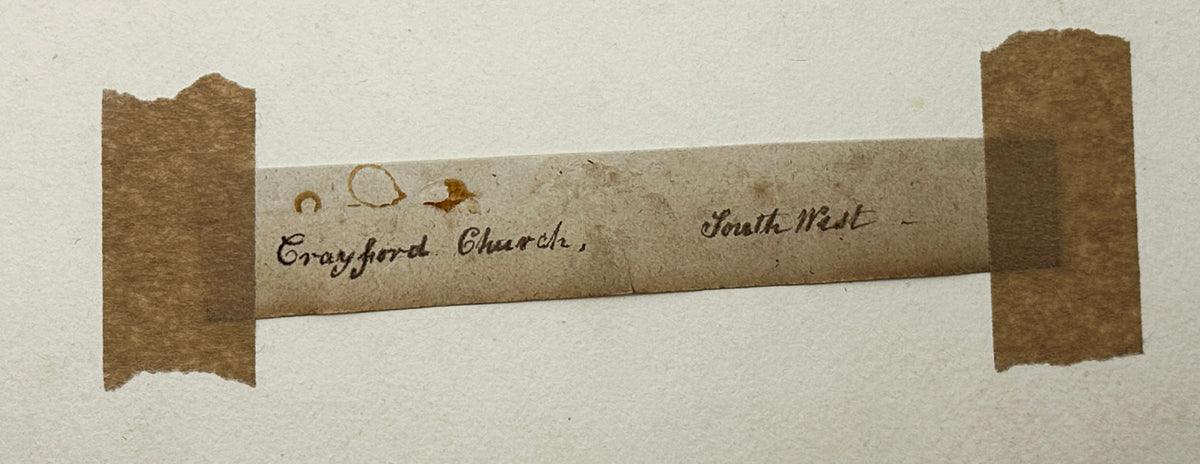 Crayford Church, South West -